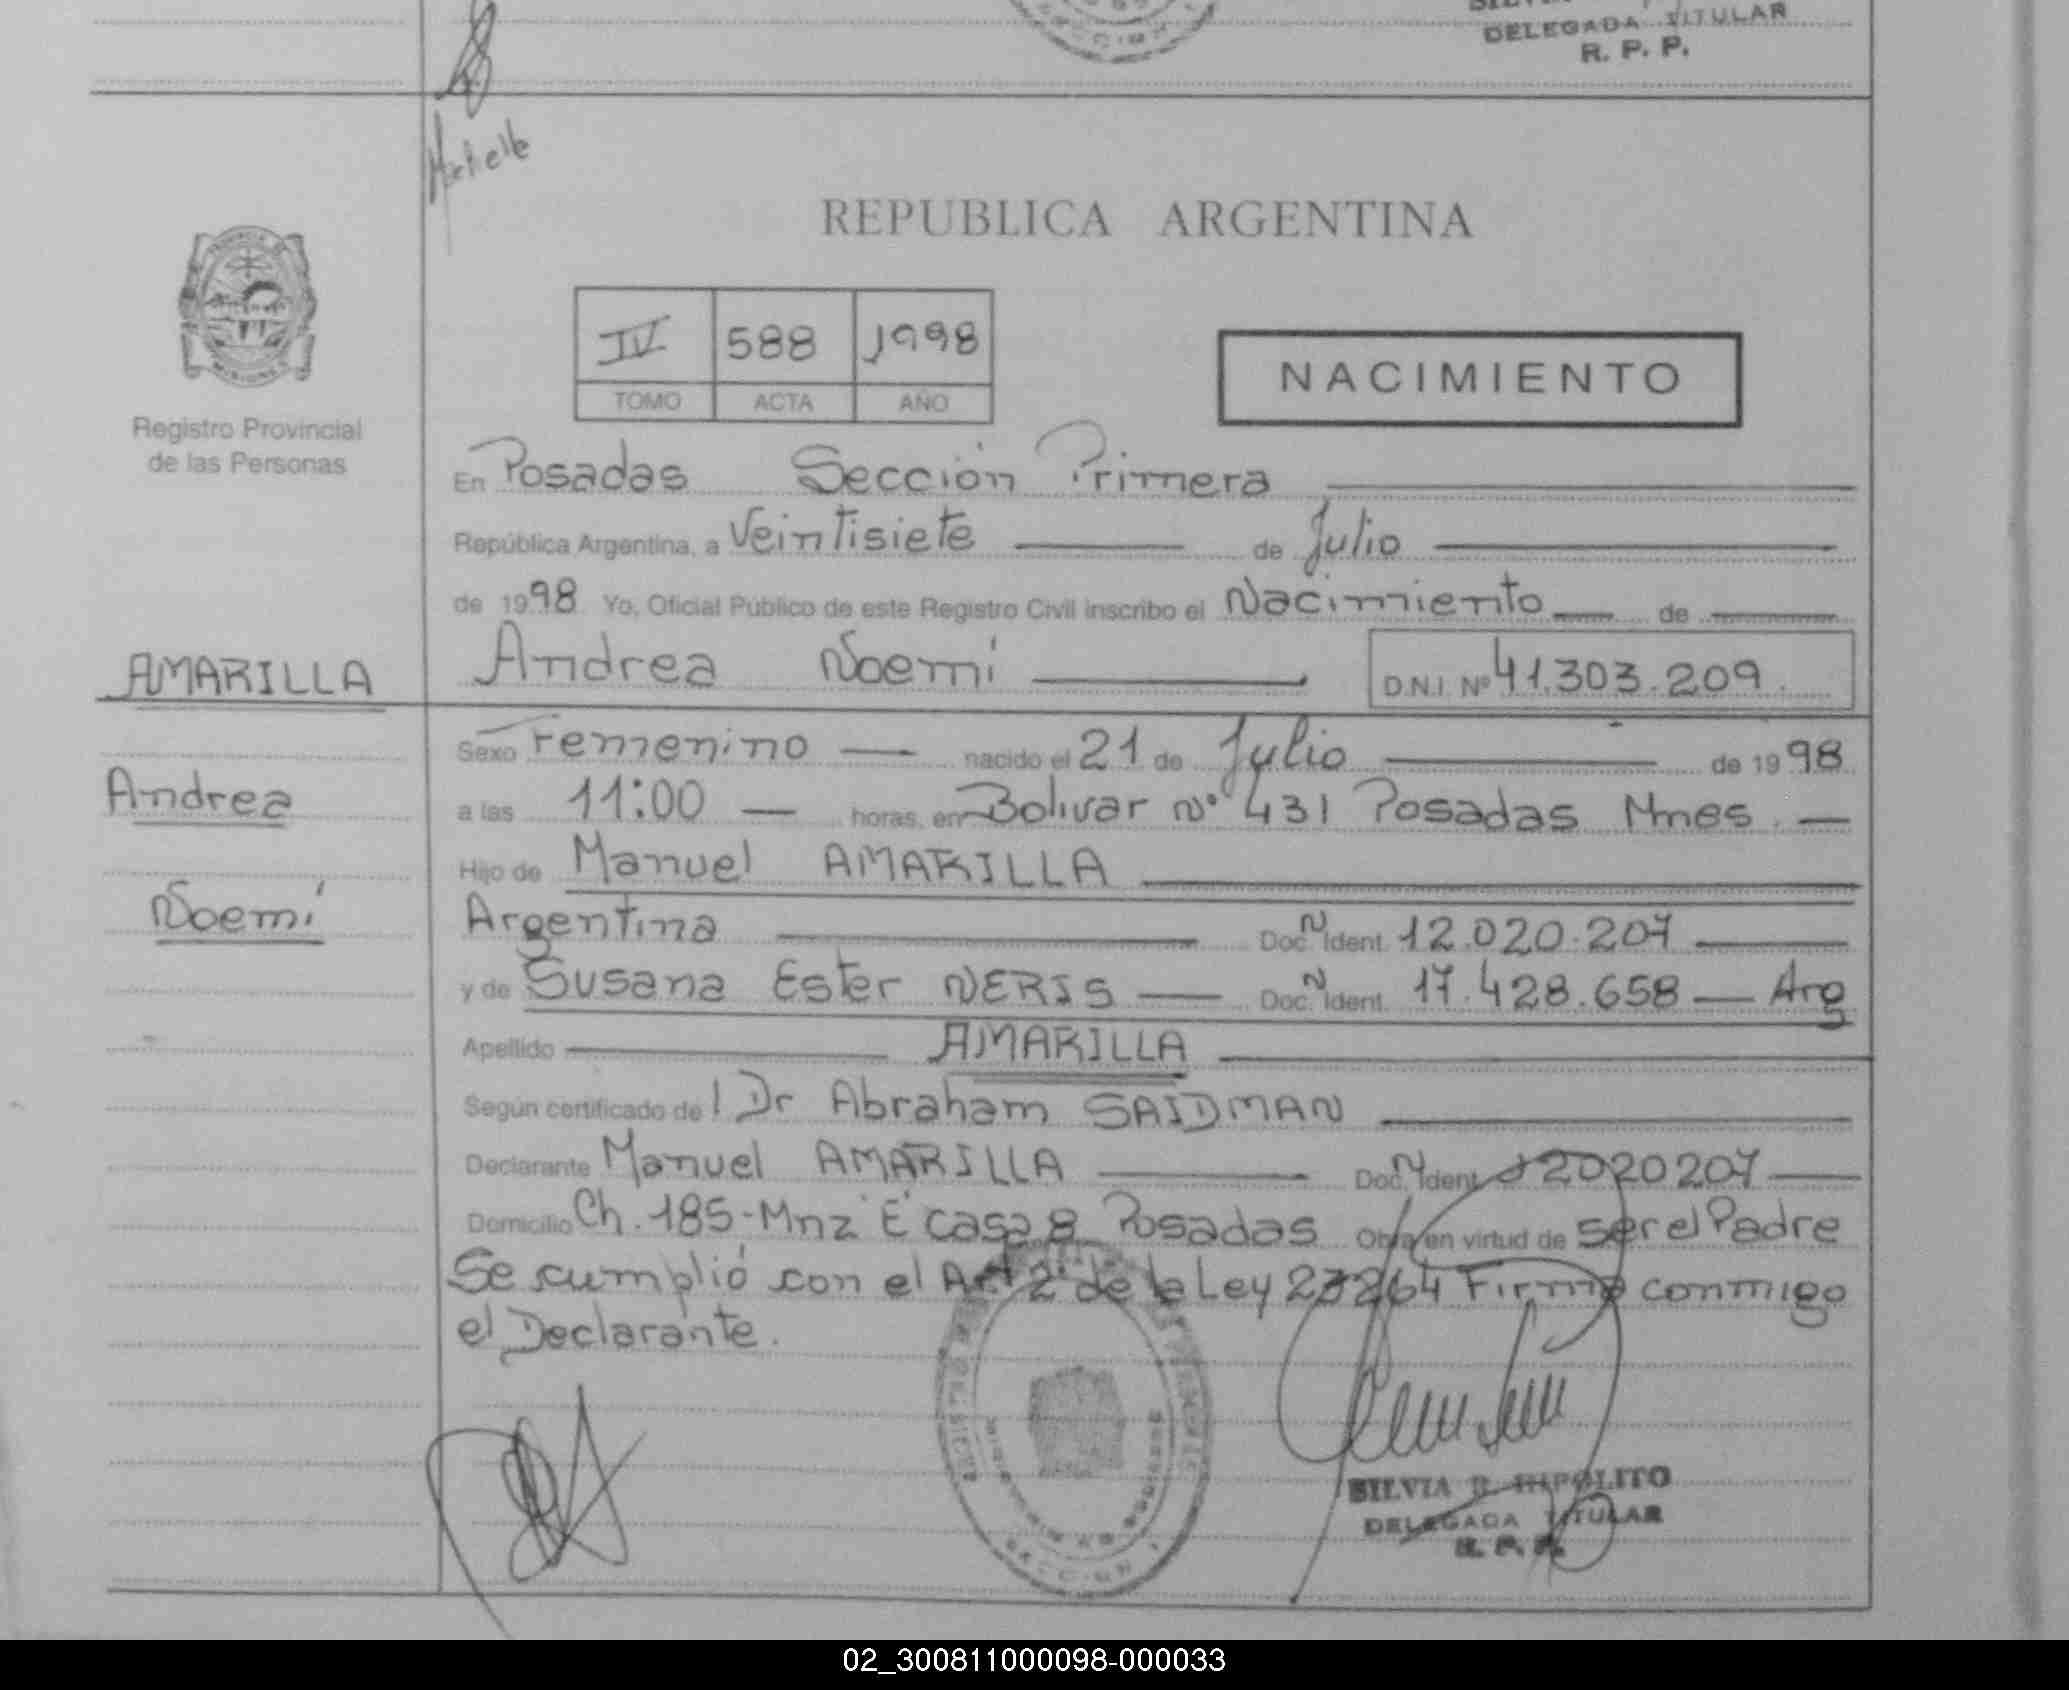 DELEGADA TITULAR
R. P. P.
REPUBLICA ARGENTINA
PROVINCIA DE
MISIONES
Registro Provincial
de las Personas
IV 588 1998
TOMO ACTA AÑO
NACIMIENTO
En Posadas Sección Primera
República Argentina, a Veintisiete de Julio
de 1998 Yo, Oficial Público de este Registro Civil inscribo el Nacimiento de
AMARILLA
Andrea Noemí D.N.I. Nº 41.303.209
Sexo Femenino nacido el 21 de Julio de 1998
Andrea
a las 11:00 horas, en Bolivar Nº 431 Posadas Mnes.
Hijo de Manuel AMARILLA
Noemí
Argentina Doc. N Ident. 12.020.207
y de Susana Ester NERIS Doc. N Ident. 17.428.658 Arg
Apellido AMARILLA
Según certificado del Dr Abraham SAIDMAN
Declarante Manuel AMARILLA Doc. N Ident. 12020207
Domicilio Ch. 185-Mnz "E" casa 8 Posadas Obra en virtud de ser el Padre
Se cumplió con el Art 2º de la Ley 23264 Firma conmigo
el Declarante.
SILVIA R. HIPOLITO
DELEGADA TITULAR
R. P. P.
02_300811000098-000033